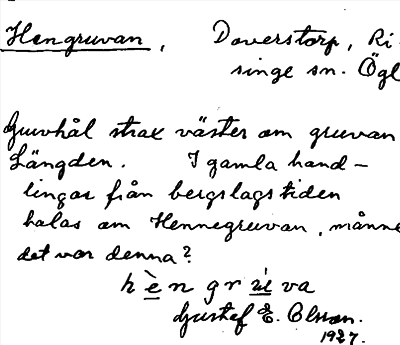 Hengruvan, Doverstorp, Ri-
singe sn. Ögl
Gruvhål strax väster om gruvan
Längden. I gamla hand-
lingar från bergslagstiden
talas om Hennegruvan, månne
det var denna?
hèn grúva
Gustaf E. Olsson.
1927.